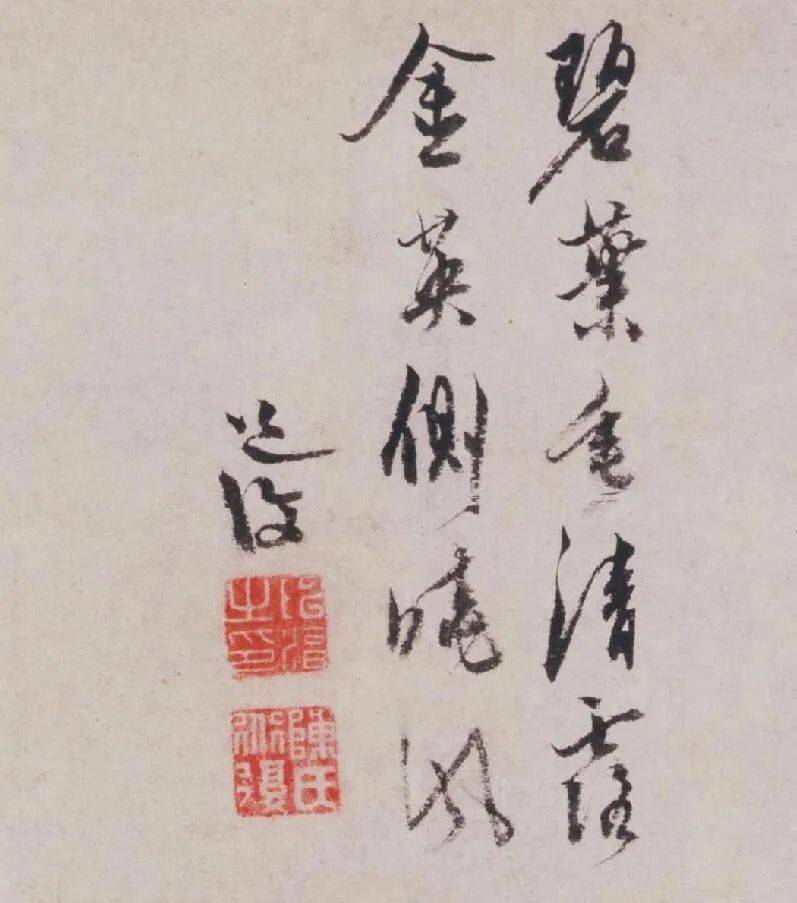 碧葉垂清露
金英側曉風
道復
陳氏道復